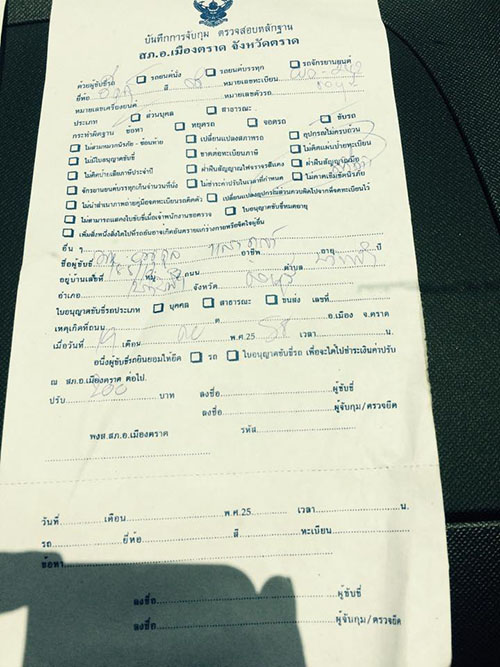 บันทึกการจับกุม ตรวจสอบหลักฐาน
สภ.อ.เมืองตราด จังหวัดตราด
ด้วยผู้ขับขี่รถ ☐ รถยนต์นั่ง ☐ รถยนต์บรรทุก ☐ รถจักรยานยนต์
ยี่ห้อ สี หมายเลขทะเบียน
หมายเลขเครื่องยนต์ หมายเลขตัวรถ
ประเภท ☐ ส่วนบุคคล ☐ สาธารณะ
กระทำผิดฐาน ข้อหา ☐ หยุดรถ ☐ จอดรถ ☐ ขับรถ
☐ ไม่สวมหมวกนิรภัย - ซ้อนท้าย ☐ เปลี่ยนแปลงสภาพรถ ☐ อุปกรณ์ไม่ครบถ้วน
☐ ไม่มีใบอนุญาตขับขี่ ☐ ขาดต่อทะเบียนภาษี ☐ ไม่ติดแผ่นป้ายทะเบียน
☐ ไม่ติดป้ายเสียภาษีประจำปี ☐ ฝ่าฝืนสัญญาณไฟจราจรสีแดง ☐ ฝ่าฝืนสัญญาณมือ
☐ จักรยานยนต์บรรทุกเกินจำนวนที่นั่ง ☐ ไม่ชำระค่าปรับในเวลาที่กำหนด ☐ ไม่คาดเข็มขัดนิรภัย
☐ ไม่นำสำเนาภาพถ่ายคู่มือจดทะเบียนรถติดตัว ☐ เปลี่ยนแปลงอุปกรณ์ส่วนควบผิดไปจากที่จดทะเบียนไว้
☐ ไม่สามารถแสดงใบขับขี่เมื่อเจ้าพนักงานขอตรวจ ☐ ใบอนุญาตขับขี่หมดอายุ
☐ เพิ่มสิ่งหนึ่งสิ่งใดไปที่รถอันอาจเกิดอันตรายแก่กายหรือจิตใจผู้อื่น
อื่น ๆ
ชื่อผู้ขับขี่ อาชีพ อายุ ปี
อยู่บ้านเลขที่ หมู่ ถนน ตำบล
อำเภอ จังหวัด
ใบอนุญาตขับขี่รถประเภท ☐ บุคคล ☐ สาธารณะ ☐ ขนส่ง เลขที่
เหตุเกิดที่ถนน ต อ.เมือง จ.ตราด
เมื่อวันที่ เดือน พ.ศ.25 58 เวลา น.
อนึ่งผู้ขับขี่รถยินยอมให้ยึด ☐ รถ ☐ ใบอนุญาตขับขี่รถ เพื่อจะได้ไปชำระเงินค่าปรับ
ณ สภ.อ.เมืองตราด ต่อไป
ปรับ 200 บาท ลงชื่อ ผู้ขับขี่
ลงชื่อ ผู้จับกุม/ตรวจยึด
พงส.สภ.อ.เมืองตราด รหัส
วันที่ เดือน พ.ศ.25 เวลา น.
รถ ยี่ห้อ สี ทะเบียน
ข้อหา
ลงชื่อ ผู้ขับขี่
ลงชื่อ ผู้จับกุม/ตรวจยึด